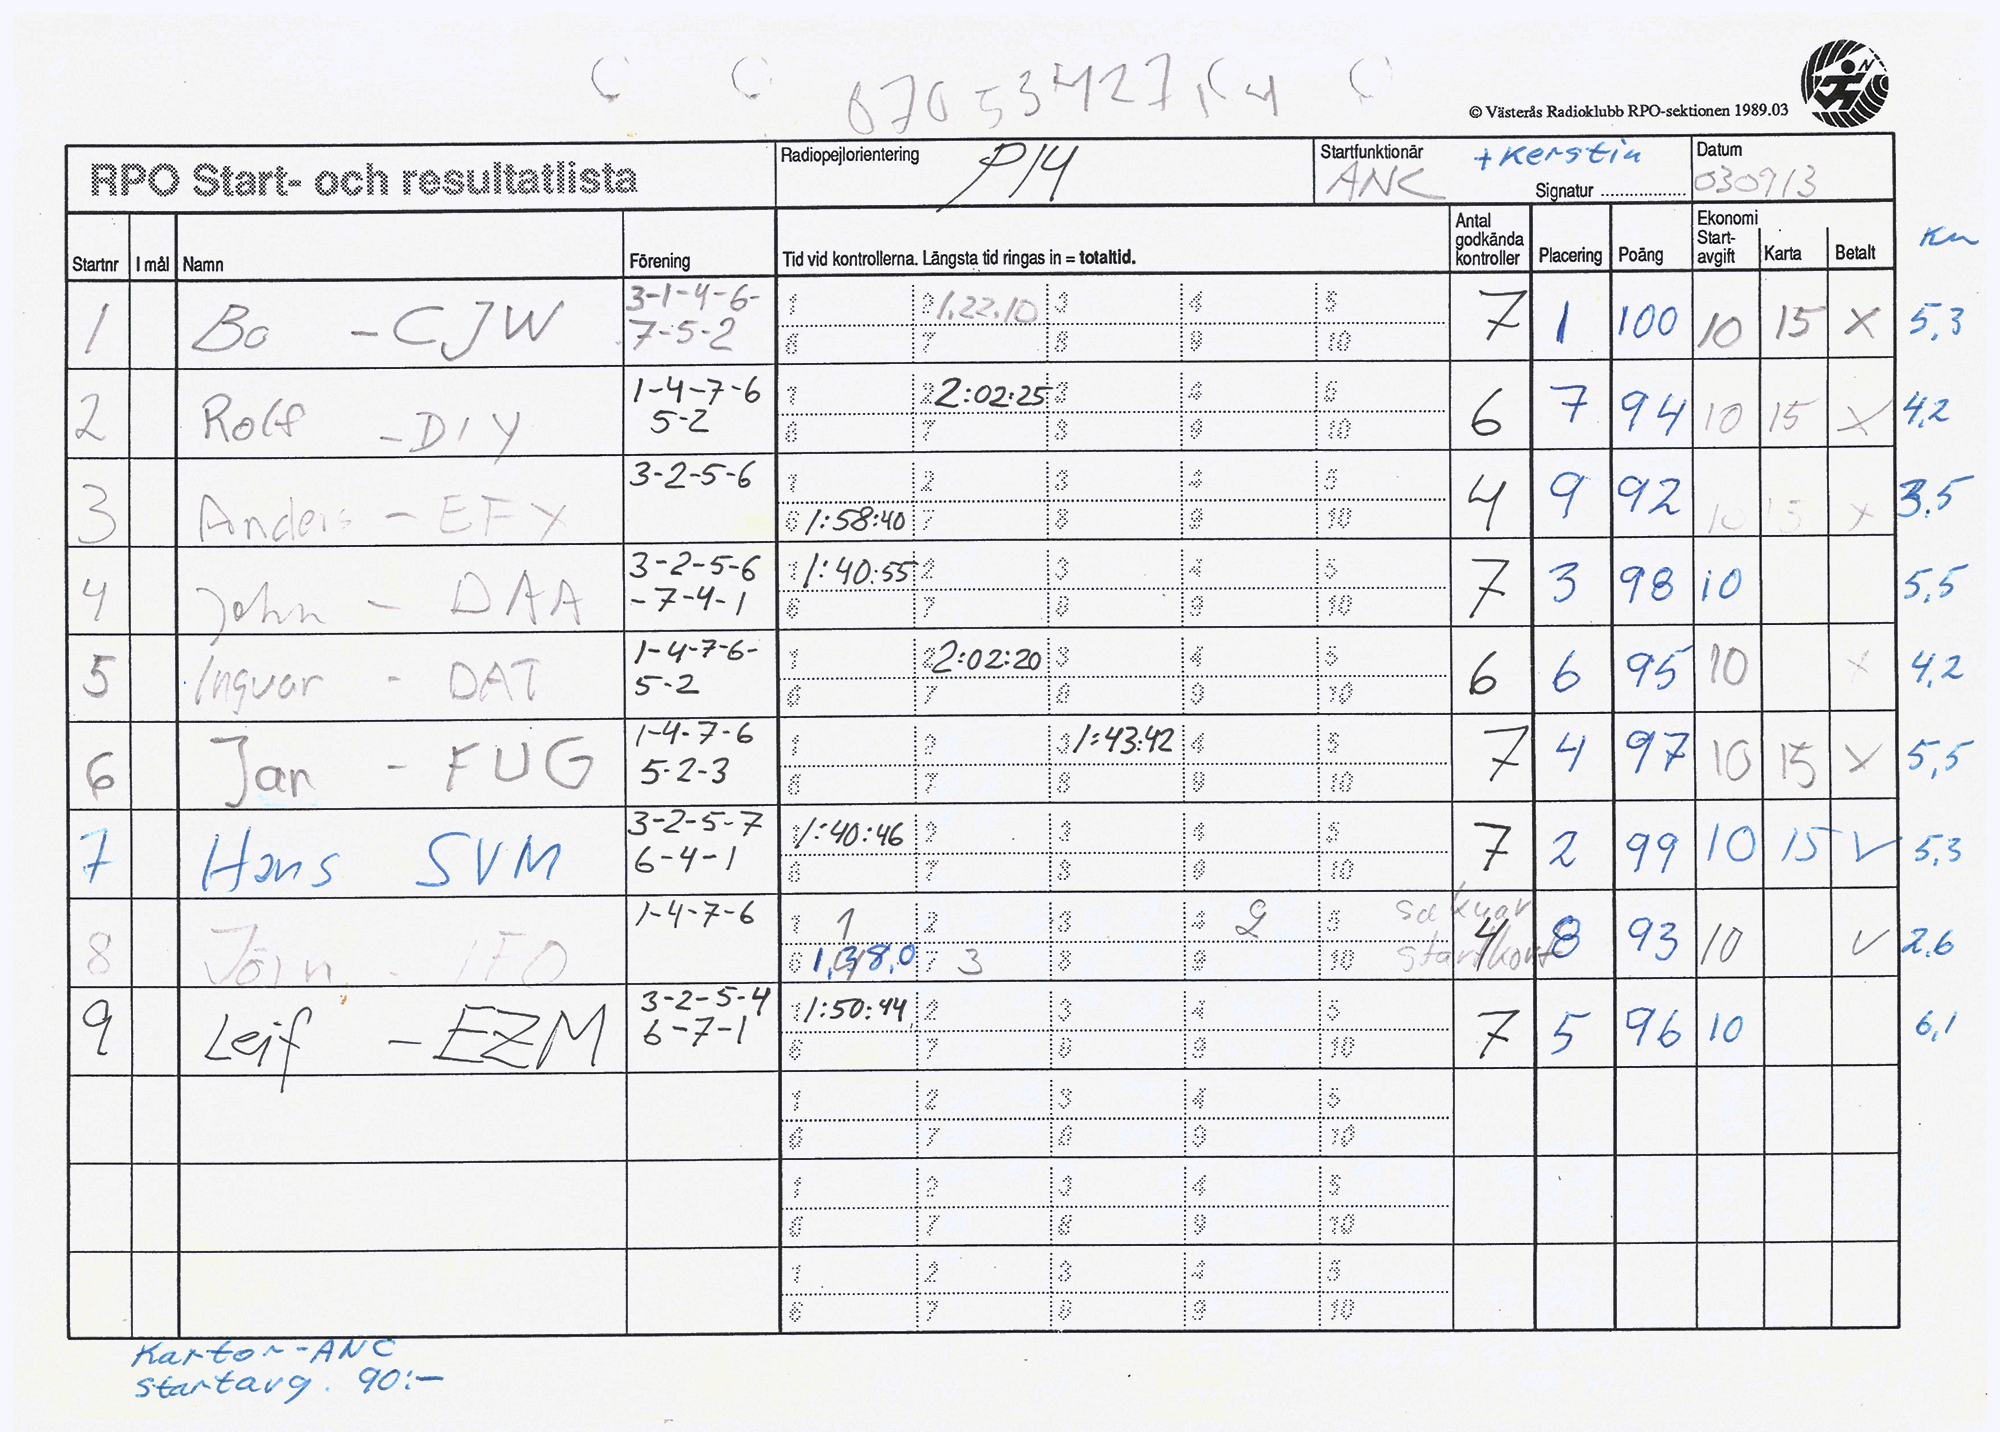 © Västerås Radioklubb RPO-sektionen 1989.03
RPO Start- och resultatlista
Radiopejlorientering P14
Startfunktionär ANC + Kerstin
Signatur ....................
Datum 030913
Startnr I mål Namn Förening Tid vid kontrollerna. Längsta tid ringas in = totaltid. Antal godkända kontroller Placering Poäng Ekonomi Start-avgift Karta Betalt Km
1 Bo - CJW 3-1-4-6-7-5-2 1 2 1.22.10 3 4 5 7 1 100 10 15 X 5,3
6 7 8 9 10
2 Rolf - DIY 1-4-7-6 5-2 1 2 2:02:25 3 4 5 6 7 94 10 15 X 4,2
6 7 8 9 10
3 Anders - EFX 3-2-5-6 1 2 3 4 5 4 9 92 10 15 X 3.5
6 1:58:40 7 8 9 10
4 John - DAA 3-2-5-6 -7-4-1 1 1:40:55 2 3 4 5 7 3 98 10 5,5
6 7 8 9 10
5 Ingvar - DAT 1-4-7-6-5-2 1 2 2:02:20 3 4 5 6 6 95 10 X 4,2
6 7 8 9 10
6 Jan - FUG 1-4-7-6 5-2-3 1 2 3 1:43:42 4 5 7 4 97 10 15 X 5,5
6 7 8 9 10
7 Hans SVM 3-2-5-7 6-4-1 1 1:40:46 2 3 4 5 7 2 99 10 15 V 5,3
6 7 8 9 10
8 Jörn - IFO 1-4-7-6 1 1 2 3 4 2 5 saknar 4 8 93 10 V 2.6
6 7 3 8 9 10 startkort
9 Leif - EZM 3-2-5-4 6-7-1 1 1:50:44 2 3 4 5 7 5 96 10 6,1
6 7 8 9 10
1 2 3 4 5
6 7 8 9 10
1 2 3 4 5
6 7 8 9 10
1 2 3 4 5
6 7 8 9 10
Kartor - ANC
Startavg. 90:-